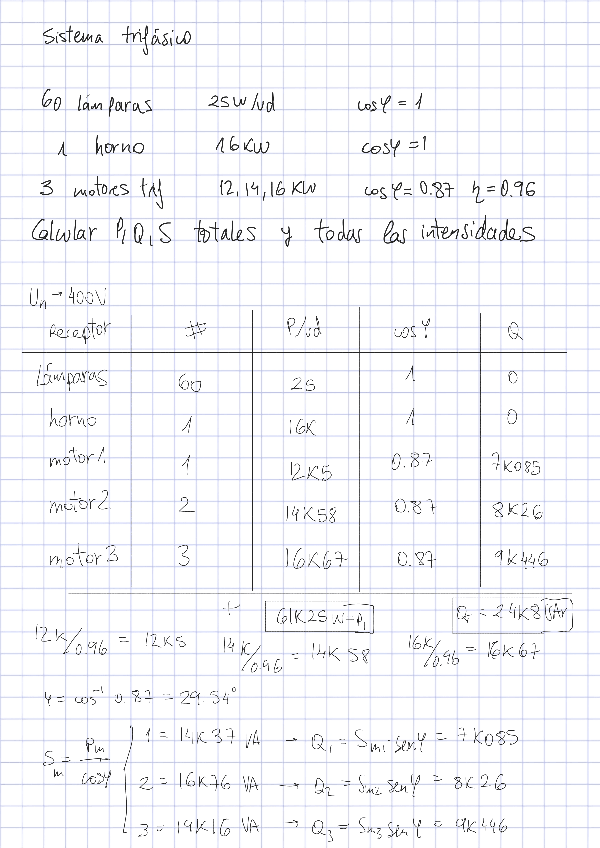 Sistema trifásico
60 lámparas 25W/ud cosφ = 1
1 horno 16KW cosφ = 1
3 motores trif 12, 14, 16 KW cosφ = 0.87 η = 0.96
Calcular P, Q, S totales y todas las intensidades
Un → 400V
Receptor # P/ud cosφ Q
Lámparas 60 25 1 0
horno 1 16K 1 0
motor 1 1 12K5 0.87 7K085
motor 2 2 14K58 0.87 8K26
motor 3 3 16K67 0.87 9K446
61K25 QT = 24K8 VAr
12K/0.96 = 12K5 14K/0.96 = 14K58 16K/0.96 = 16K67
φ = cos⁻¹ 0.87 = 29.54°
Sm = Pm/cosφ
1 = 14K37 VA → Q1 = Sm1 · senφ = 7K085
2 = 16K76 VA → Q2 = Sm2 senφ = 8K26
3 = 19K16 VA → Q3 = Sm3 sinφ = 9K446